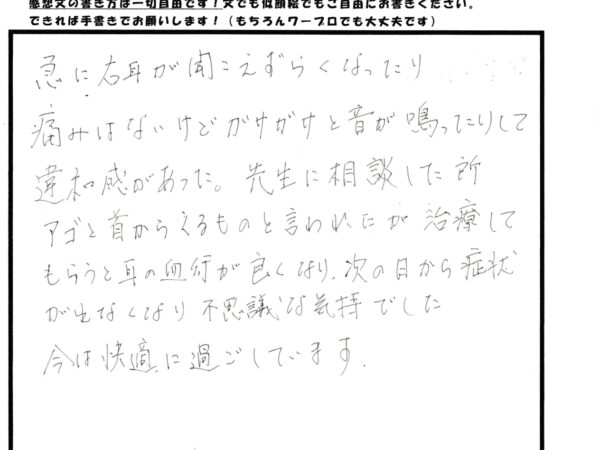 感想文の書き方は一切自由です！文でも似顔絵でもご自由にお書きください。
できれば手書きでお願いします！（もちろんワープロでも大丈夫です）
急に右耳が聞こえずらくなったり
痛みはないけどガサガサと音が鳴ったりして
違和感があった。先生に相談した所
アゴと首からくるものと言われたが治療して
もらうと耳の血行が良くなり、次の日から症状
が出なくなり不思議な気持でした
今は快適に過ごしています.